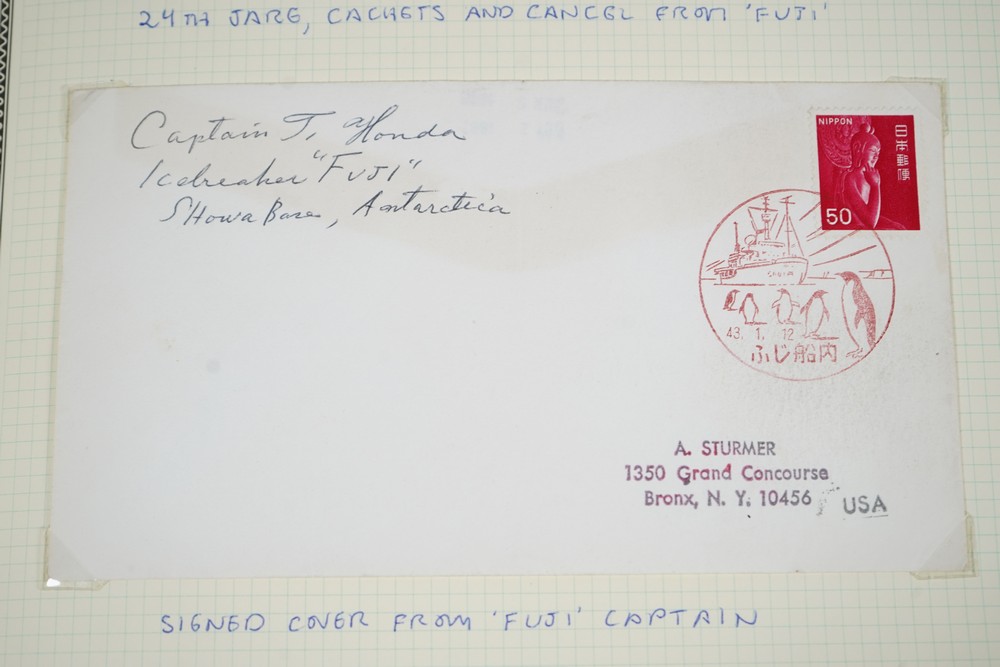 24TH JARE, CACHETS AND CANCEL FROM 'FUJI'
Captain T. Honda
Icebreaker "FUJI"
Showa Base, Antarctica
NIPPON
日本郵便
50
43. 1. 12
ふじ船内
A. STURMER
1350 Grand Concourse
Bronx, N. Y. 10456 USA
SIGNED COVER FROM 'FUJI' CAPTAIN